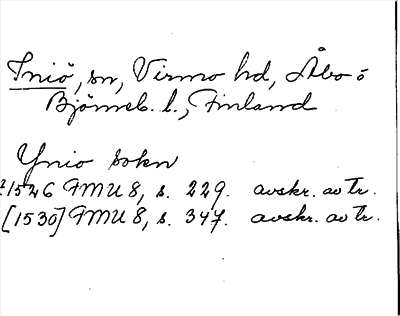 Iniö, sn, Virmo hd, Åbo ö
Björneb. l., Finland
Ynio sokn
1526 FMU 8, s. 229. avskr. av tr.
[1530] FMU 8, s. 347. avskr. av tr.